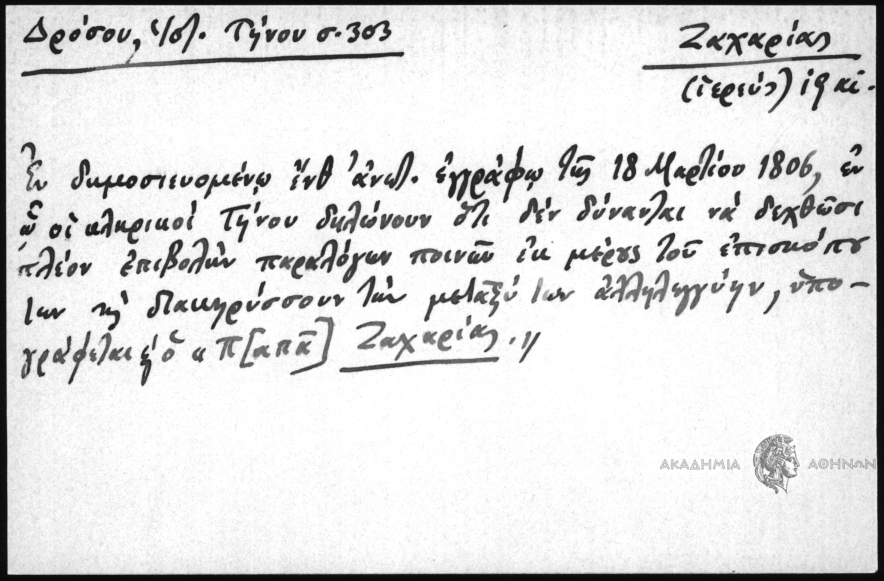 Δρόσου, ἱστ. Τήνου σ. 303
Ζαχαρίας
(ἱερεύς) 19 αἰ.
Ἐν δημοσιευομένῳ ἔνθ' ἀνωτ. ἐγγράφῳ τῆς 18 Μαρτίου 1806, ἐν
ᾧ οἱ κληρικοί Τήνου δηλώνουν ὅτι δέν δύνανται νά δεχθῶσι
πλέον ἐπιβολήν παραλόγων ποινῶν ἐκ μέρους τοῦ ἐπισκόπου
των καί διακηρύσσουν τήν μεταξύ των ἀλληλεγγύην, ὑπο-
γράφεται καί ὁ « Π[απᾶ] Ζαχαρίας.»
ΑΚΑΔΗΜΙΑ ΑΘΗΝΩΝ